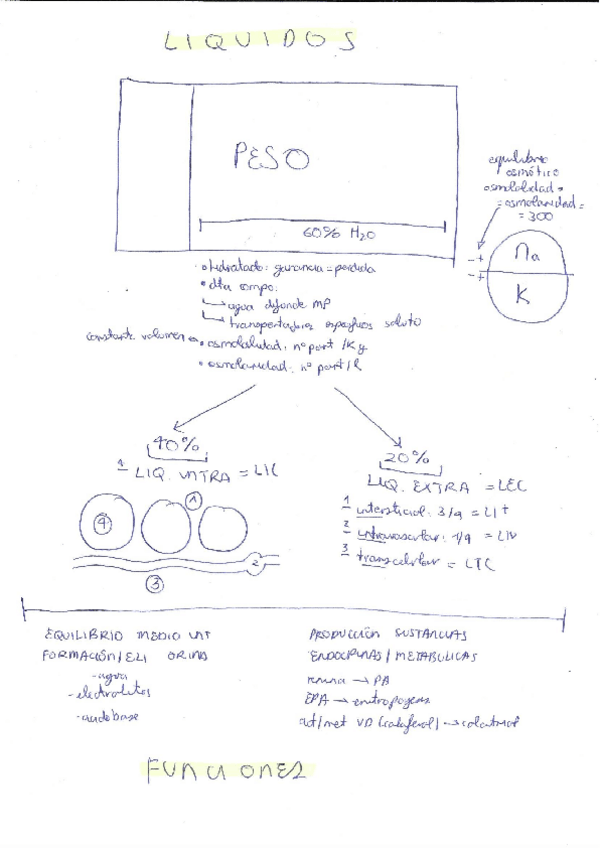 LIQUIDOS
PESO
60% H2O
equilibrio
osmótico
osmolalidad =
= osmolaridad =
= 300
- +
- +
Na
K
• Hidratado: ganancia = perdida
• dta compo:
→ agua difunde MP
→ transportadores específicos soluto
constante volumen • osmolalidad: nº part /Kg
• osmolaridad: nº part/l
40%
1 LIQ. INTRA = LIC
20%
LIQ. EXTRA = LEC
1 intersticial: 3/4 = LIT
2 intravascular: 1/4 = LIV
3 transcelular = LTC
4
1
2
3
EQUILIBRIO MEDIO INT
FORMACIÓN/ELI ORINA
- agua
- electrolitos
- acidobase
PRODUCCIÓN SUSTANCIAS
ENDOCRINAS/METABOLICAS
renina → PA
EPA → eritropoyesis
act/met VD (calciferol) → calcitriol
FUNCIONES